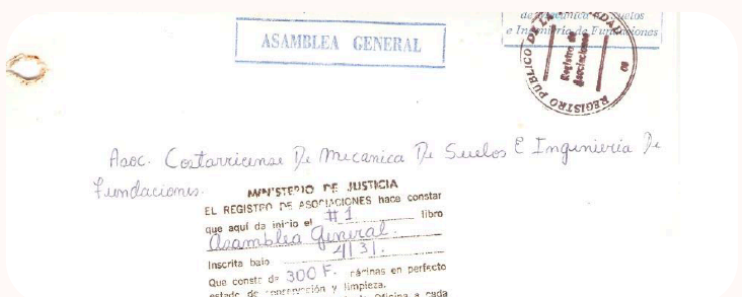 de Mecánica de Suelos
e Ingeniería de Fundaciones
ASAMBLEA GENERAL
REGISTRO PUBLICO DE LA
Registro de
Asociaciones
Asoc. Costarricense De Mecanica De Suelos E Ingenieria De
Fundaciones.
MINISTERIO DE JUSTICIA
EL REGISTRO DE ASOCIACIONES hace constar
que aquí da inicio el #1 libro
Asamblea General.
Inscrita bajo 4131.
Que consta de 300 F. páginas en perfecto
estado de conservación y limpieza.
Oficina a cada